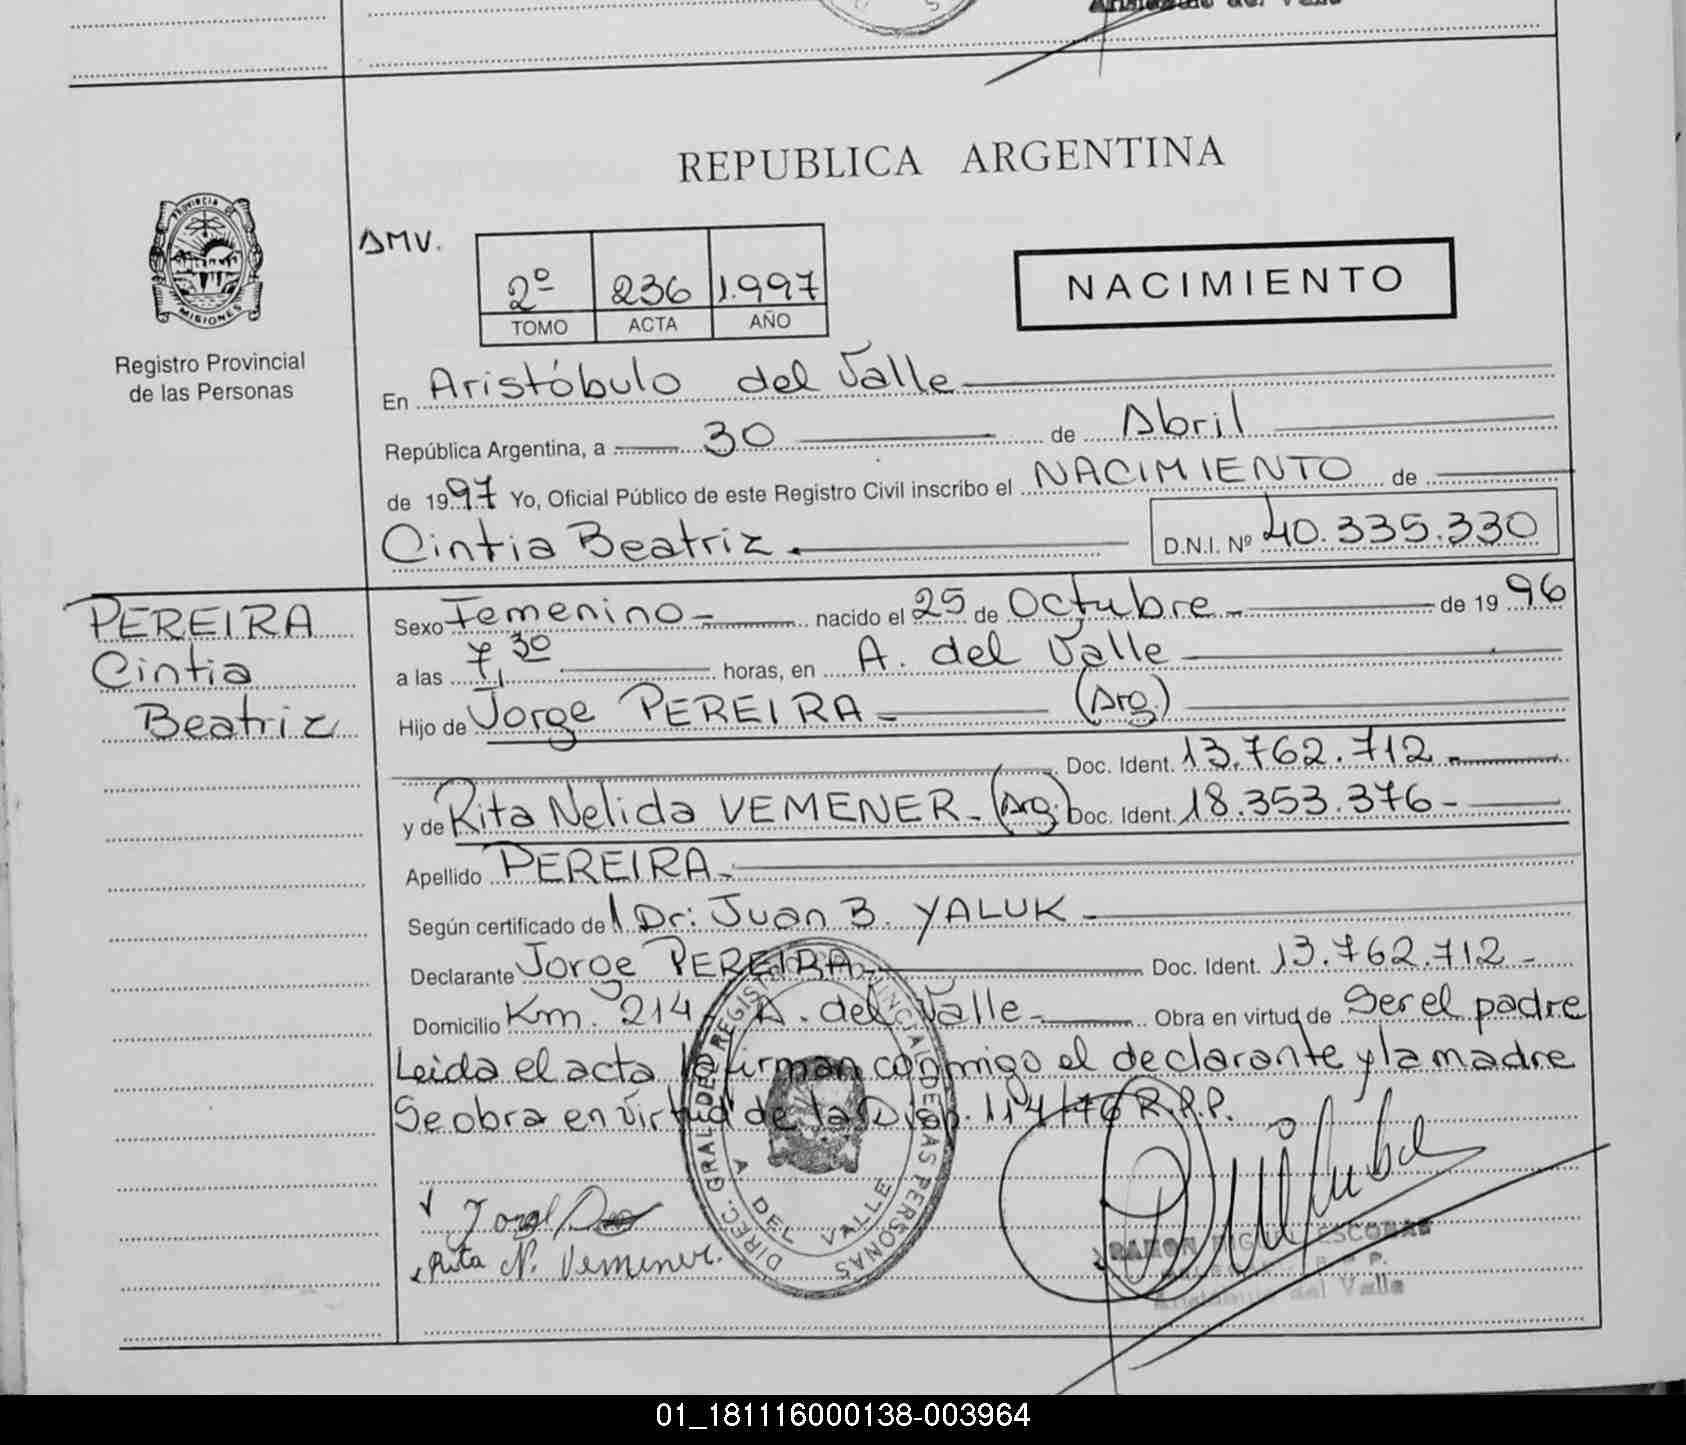 Aristóbulo del Valle
REPUBLICA ARGENTINA
PROVINCIA DE
MISIONES
Registro Provincial
de las Personas
AMV.
2º 236 1.997
TOMO ACTA AÑO
NACIMIENTO
En Aristóbulo del Valle
República Argentina, a 30 de Abril
de 1997 Yo, Oficial Público de este Registro Civil inscribo el NACIMIENTO de
Cintia Beatriz. D.N.I. Nº 40.335.330
PEREIRA
Cintia
Beatriz
Sexo Femenino - nacido el 25 de Octubre - de 1996
a las 7,30 horas, en A. del Valle
Hijo de Jorge PEREIRA - (Arg.)
Doc. Ident. 13.762.712 -
y de Rita Nelida VEMENER - (Arg.) Doc. Ident. 18.353.376 -
Apellido PEREIRA -
Según certificado del Dr: Juan B. YALUK -
Declarante Jorge PEREIRA - Doc. Ident. 13.762.712 -
Domicilio Km. 214 - A. del Valle - Obra en virtud de Ser el padre
Leida el acta la firman conmigo el declarante y la madre
Se obra en virtud de la Disp. 114/76 R.P.P.
DIREC. GRAL DE REGISTRO PROVINCIAL DE LAS PERSONAS
A DEL VALLE
Rita N. Vemener.
RAMON MIGUEL ESCOBAR
Aristóbulo del Valle
01_181116000138-003964